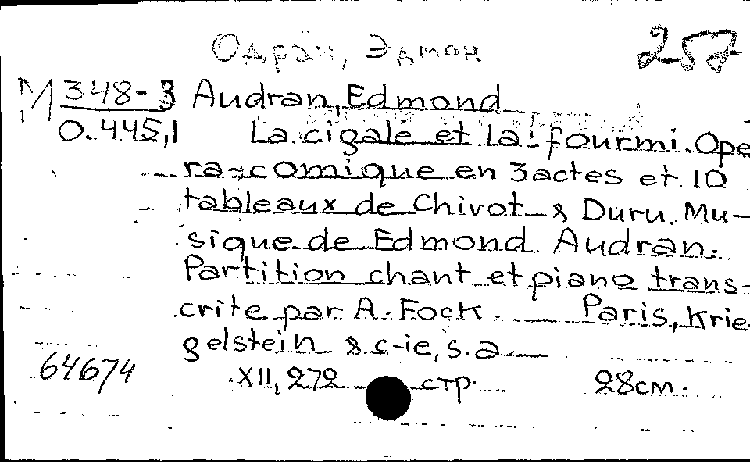 Одран, Эдмон
257
М 348-3
0.445,1
Audran, Edmond
La cigale et la fourmi. Ope
ra-comique en 3 actes et 10
tableaux de Chivot & Duru. Mu-
sique de Edmond Audran.
Partition chant et piano trans-
crite par A. Fock. Paris, Krie
gelstein & c-ie, s.a.
64674
XII, 272 стр. 28 см.